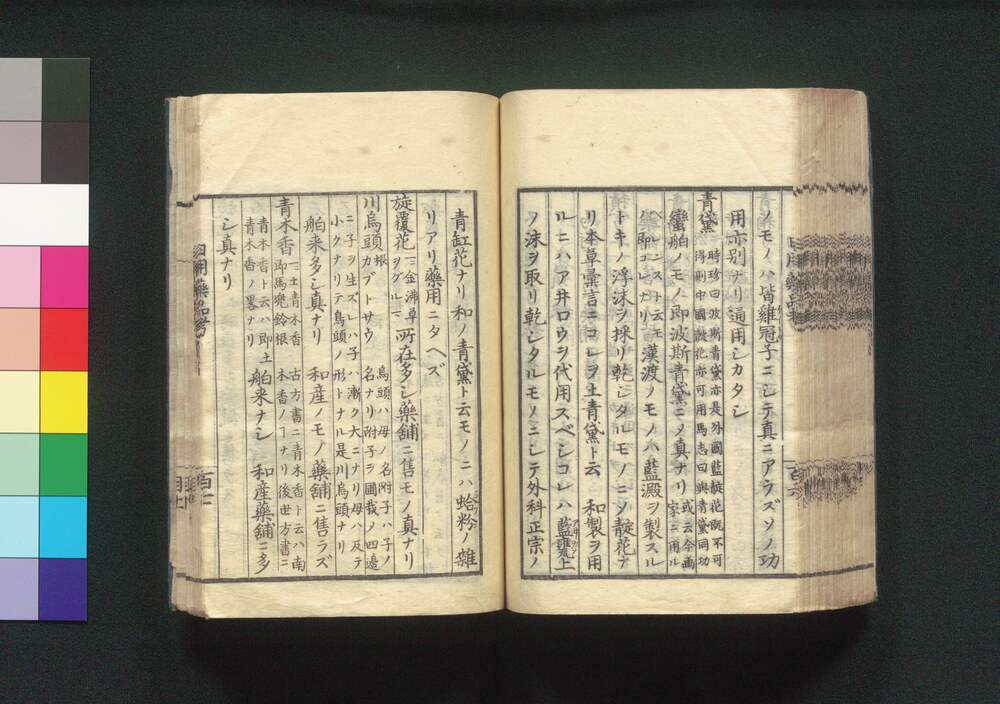 ノモノハ皆雞冠子ニシテ真ニアラズソノ功
用亦別ナリ通用シカタシ
青黛 時珍曰波斯青黛亦是外國藍靛花既不可
得則中國靛花亦可用馬志曰與青黛同功
蠻舶ノモノハ即波斯青黛ニノ真ナリ 或云今画
家ニ用ル
ベレンスト云モ
即コレナリ 漢渡ノモノハ藍澱ヲ製スル
トキノ浮沫ヲ採リ乾シタルモノニソ靛花ナ
リ本草彙言ニコレヲ土青黛ト云 和製ヲ用
ルニハアヰロウヲ代用スベシコレハ藍甕上
ノ沫ヲ取リ乾シタルモノニシテ外科正宗ノ
青缸花ナリ和ノ青黛ト云モノニハ蛤粉ノ雜
リアリ藥用ニタヘズ
旋覆花 一ニ金沸草
ヲグルマ 所在多シ藥舖ニ售モノ真ナリ
川烏頭根 カブトサウ 烏頭ハ母ノ名附子ハ子ノ
名ナリ附子ヲ圃栽ノ四邊
ニ子ヲ生ズレハ子ハ漸ク大ニナリ母ハ反テ
小クナリテ烏頭ノ形トナル是川烏頭ナリ
舶来多シ真ナリ 和産ノモノ藥舖ニ售ラズ
青木香 一ニ土青木香
即馬兜鈴根 古方書ニ青木香ト云ハ南
木香ノヿナリ後世方書ニ
青木香ト云ハ即土
青木香ノ畧ナリ 舶来ナシ 和産藥舖ニ多
シ真ナリ